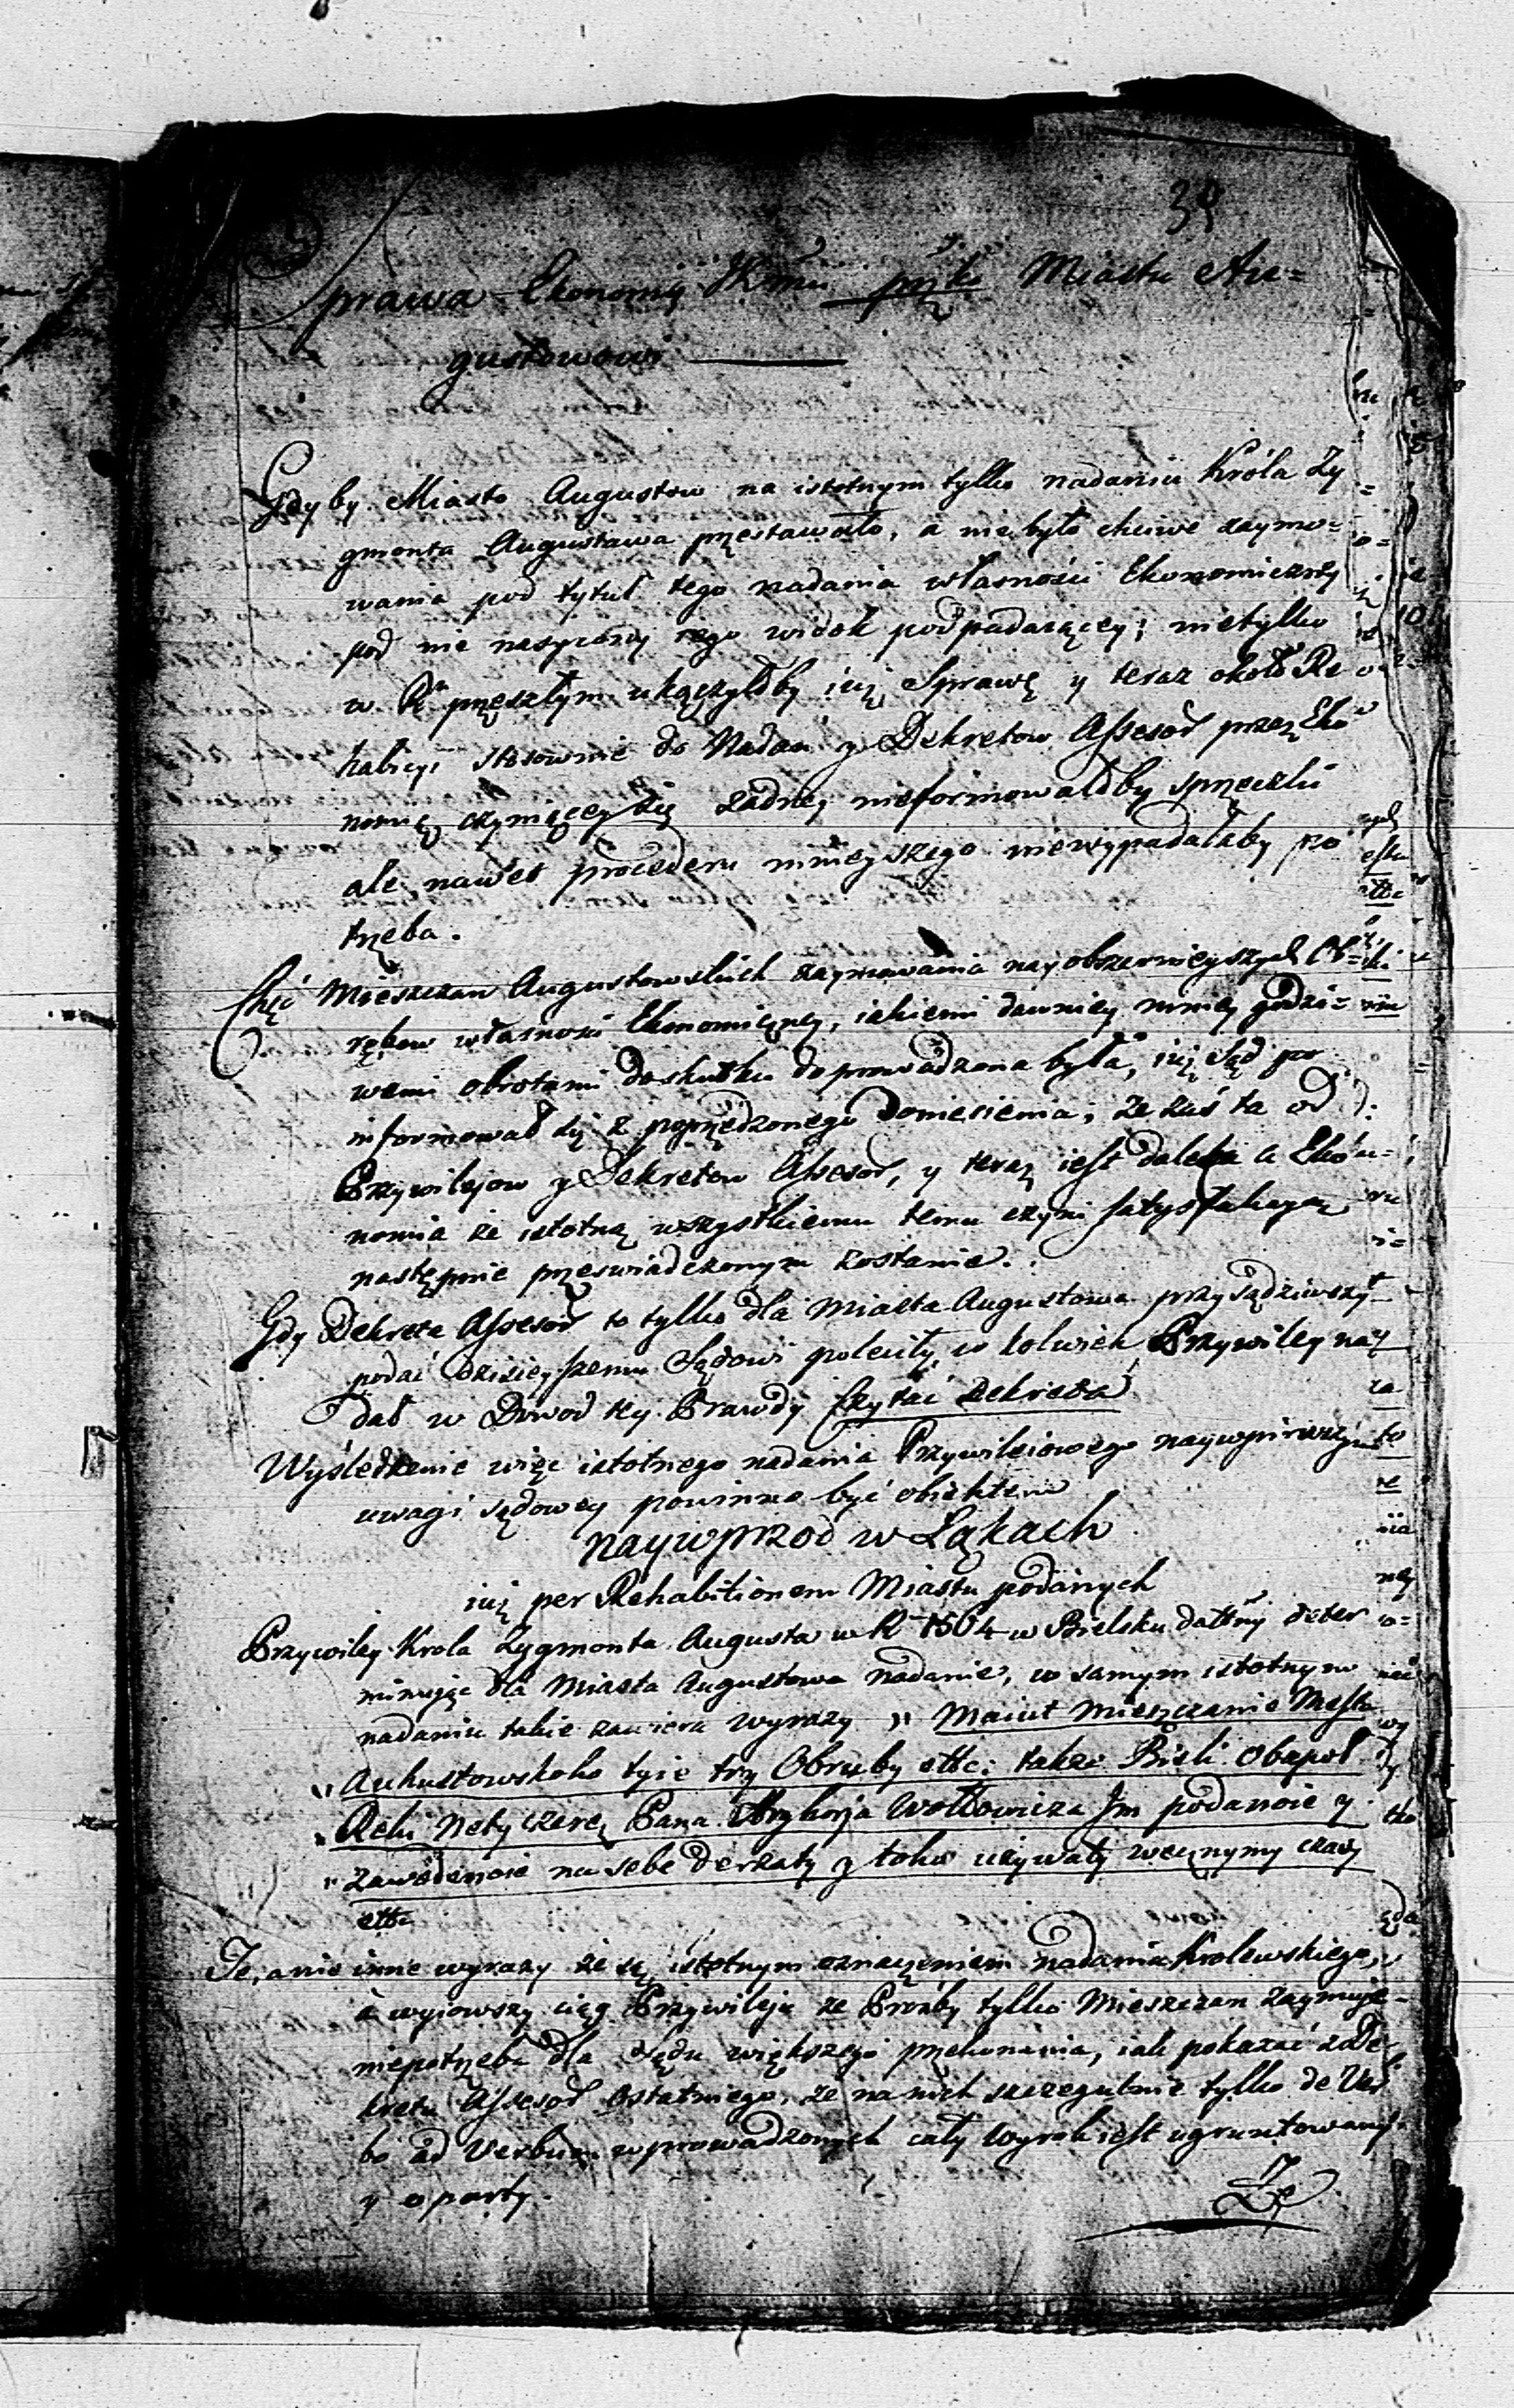 39
Sprawa Ekonomij JKmci pzko Miastu Au=
gustowowi
Gdyby Miasto Augustow na istotnym tylko nadaniu Króla Zy
gmonta Augustawa pżestawało, a nie było chciwe zaymo=
wania pod tytuł tego nadania własności Ekonomiczney
pod nie nasycony iego widok podpadaiącey; nietylko
w R. pżeszłym ukączyłoby iuż Sprawę y teraz około Re
habicyi stosownie do Nadań y Dekretow Assesoł przez Eko
nomię czyniącey się żadney nieformowałoby spżeczki
ale nawet procederu ninieyszego niewypadałaby po
tżeba.
Chęć Mieszczan Augustowskich zaymowania nayobszernieyszych Ob=
rębow własności Ekonomiczney, iakiemi dawniey mniey godzi=
wemi obrotami do skutku doprowadzona była, iuż Sąd po
informował się z popżedzonego Doniesienia; że zaś ta od
Przywilejow y Dekretow Assesoł, y teraz iest daleka a Eko=
nomia że istotną wszystkiemu temu czyni satysfakcyą
następnie pżeswiadczonym zostanie.
Gdy Dekreta Assesoł to tylko dla Miasta Augustowa przysądziwszy
podać dzisieyszemu Sądowi poleciły co kolwiek Przywiley na
dał w Dowod tey Prawdy Czytać Dekreta
Wyśledzenie więc istotnego nadania Przywileiowego naywpierwszym
uwagi sądowey powinno być obiektem
naywprzod w Łąkach
iuż per Rehabitionem Miastu podanych
Przywiley Krola Zygmonta Augusta w R 1564 w Bielsku dattny deter
minując dla Miasta Augustowa nadanie, w samym istotnym
nadaniu takie zawiera wyrazy „ Maiut Mieszczanie Mesta
„ Auhustowskoho tyie try Obruby ettc: takze Bieli Obapol
„ Reki Nety czerez Pana Hryhorja Wołłowicza Im podanoie y
„ zawedenoie na sebe derżaty y toho używaty wecznymy czasy
ettc
Te, a nie inne wyrazy że są istotnym oznaczeniem nadania Krolewskiego,
a wyiowszy ciąg Przywileju ze Prozby tylko Mieszczan zaymuje
niepotżeba dla Sądu większego pżekonania, iak pokazać z De
kretu Assesoł Ostatniego, że na nich szczegulnie tylko de Ver
bo ad Verbum wprowadzonych cały wyrok iest ugruntowany
y oparty.
Że